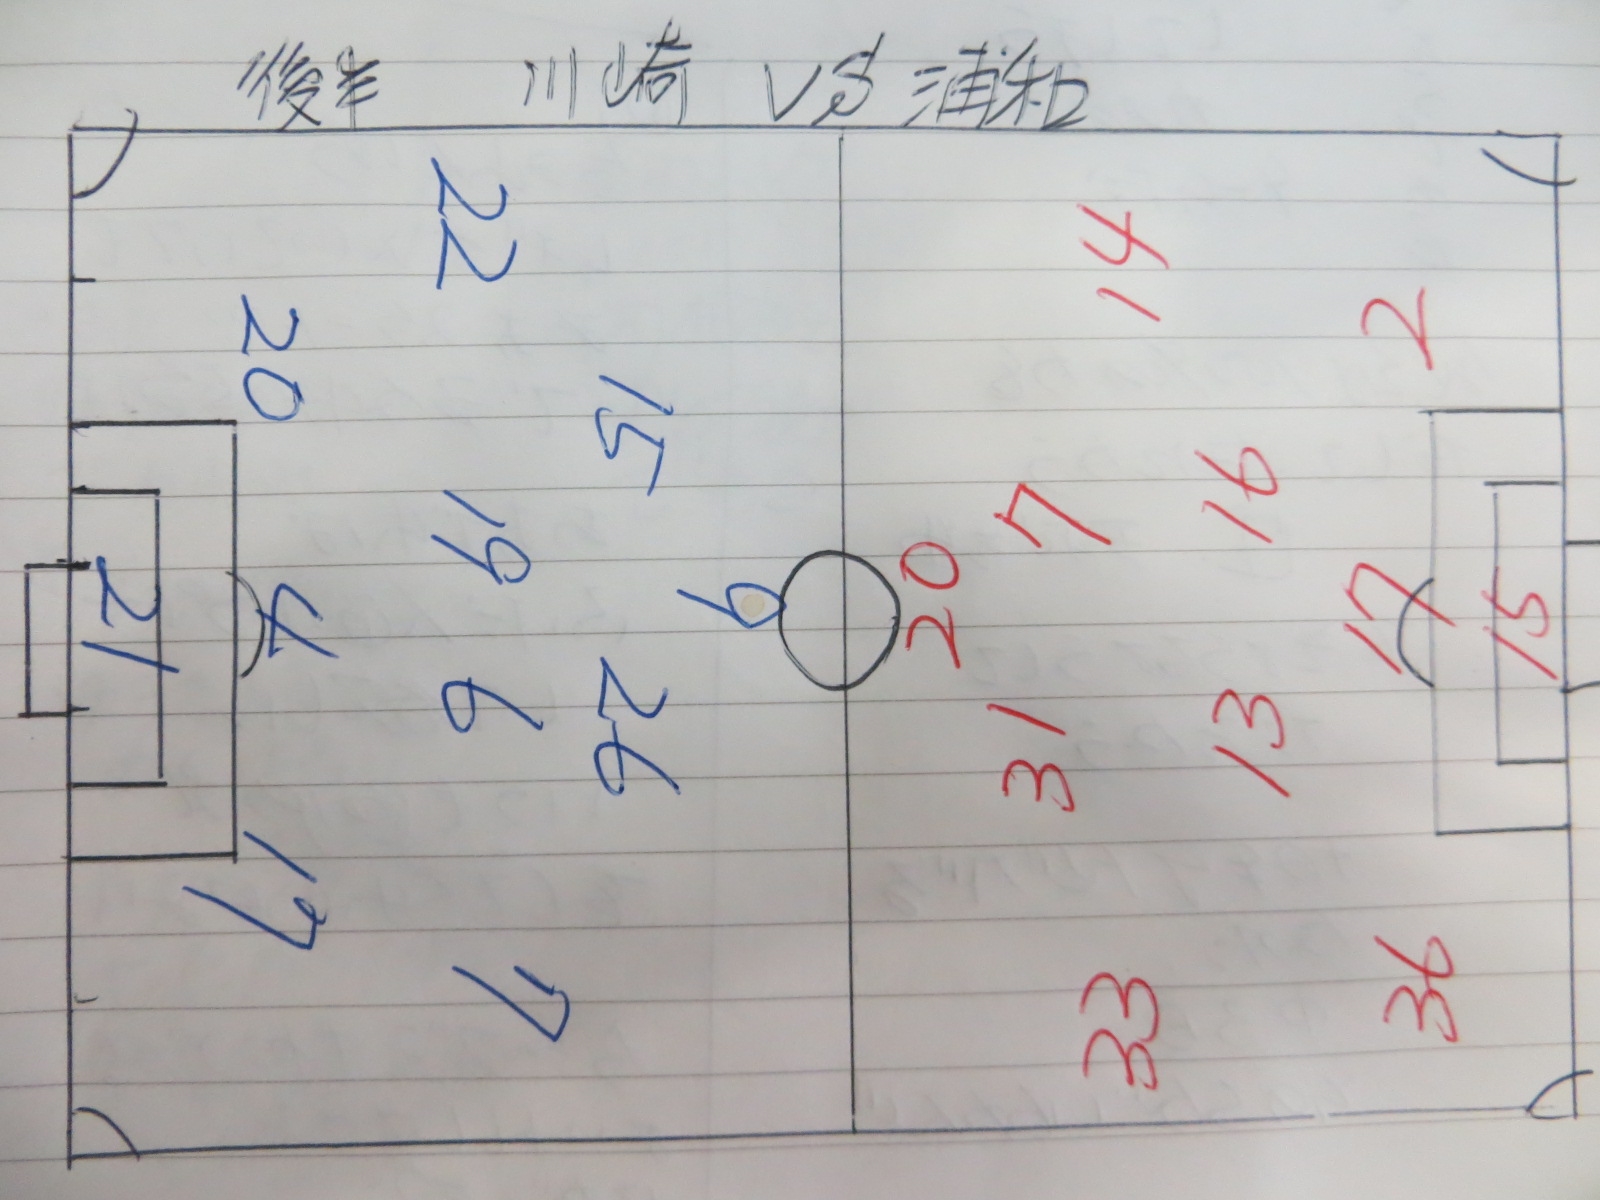 後半 川崎 VS 浦和
22
14
20
2
15
16
7
19
21
4
9
20
17
15
6
26
31
13
17
7
33
36